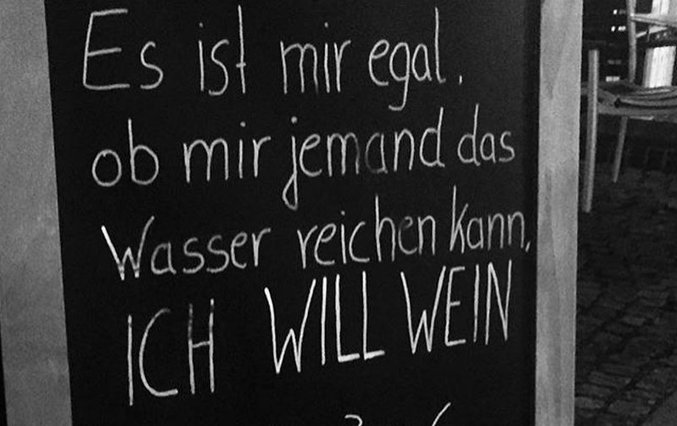 Es ist mir egal,
ob mir jemand das
Wasser reichen kann,
ICH WILL WEIN